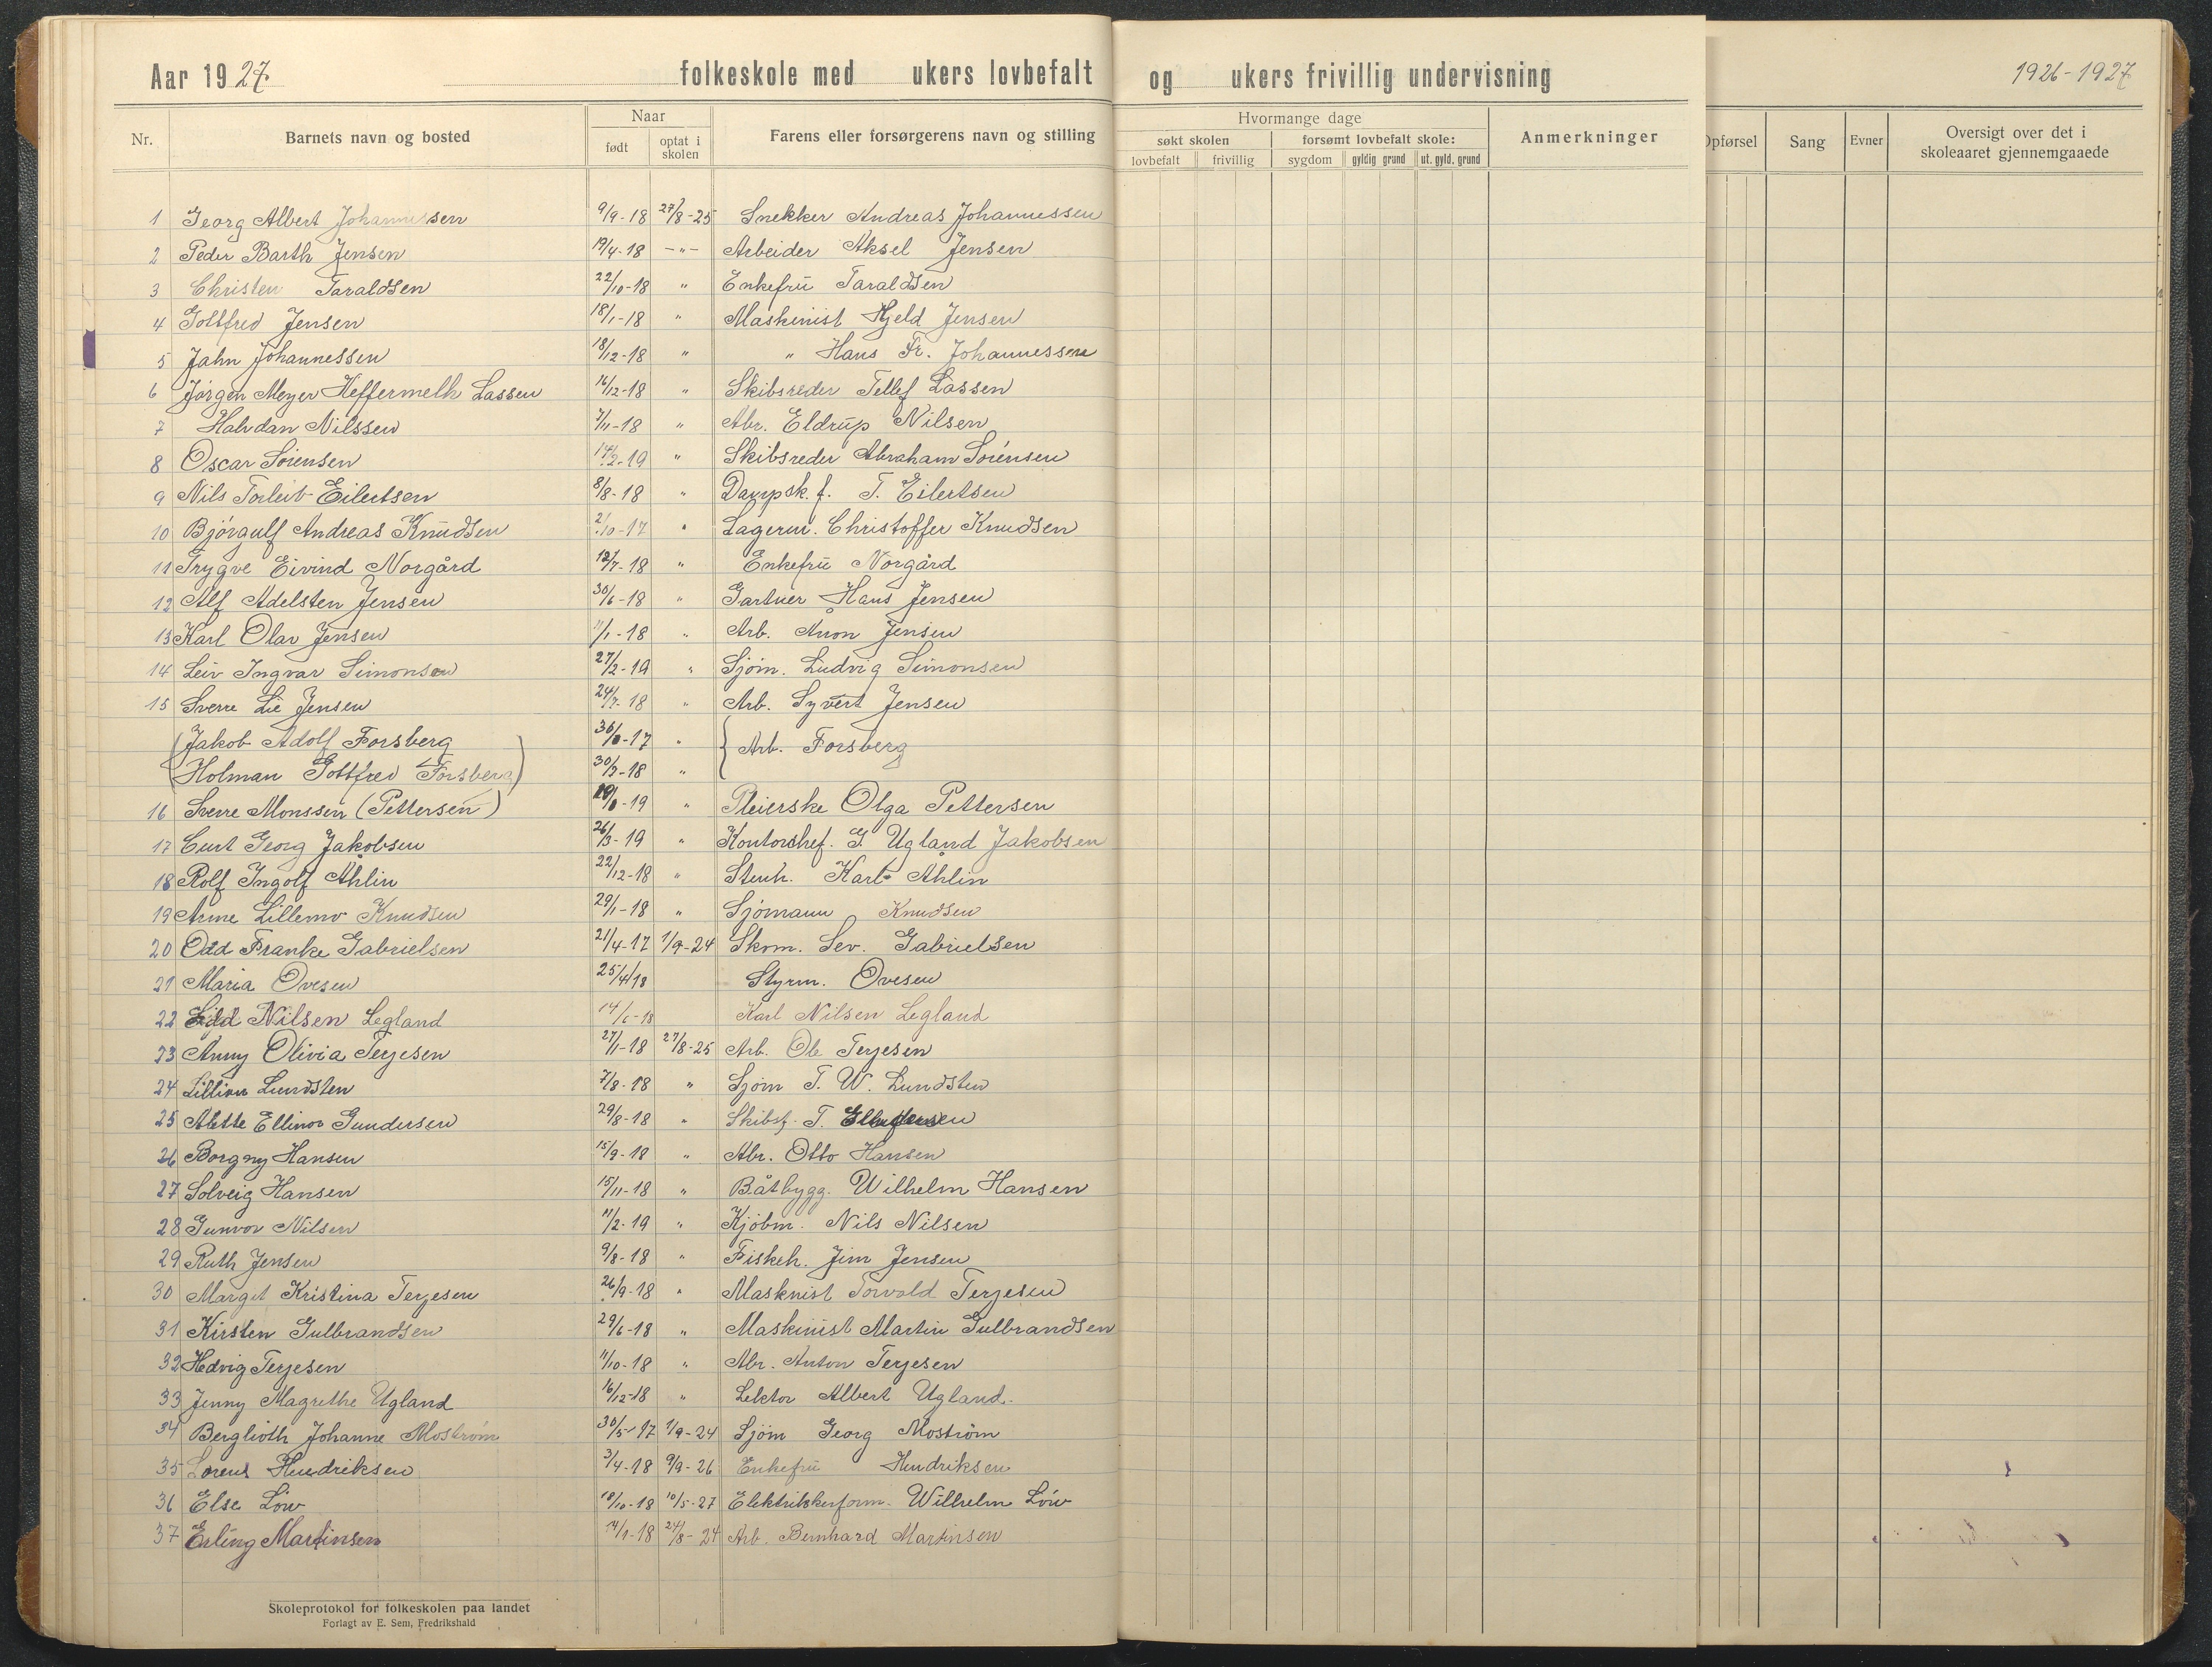 Aar 1927. folkeskole med ukers lovbefalt og ukers frivillig undervisning 1926-1927
Nr. Barnets navn og bosted Naar født optat i skolen Farens eller forsørgerens navn og stilling Hvormange dage søkt skolen lovbefalt frivillig forsømt lovbefalt skole: sygdom gyldig grund ut. gyld. grund Anmerkninger Opførsel Sang Evner Oversigt over det i skoleaaret gjennemgaaede
1 Georg Albert Johannessen 9/9-18 27/8-25 Snekker Andreas Johannessen
2 Peder Barth Jensen 19/4-18 -"- Arbeider Aksel Jensen
3 Christen Taraldsen 22/10-18 " Enkefru Taraldsen
4 Gottfred Jensen 18/1-18 " Maskinist Kjeld Jensen
5 Jahn Johannessen 18/12-18 " " Hans Fr. Johannessen
6 Jørgen Meyer Heffermelh Lassen 16/12-18 " Skibsreder Tellef Lassen
7 Halvdan Nilssen 7/11-18 " Abr. Eldrup Nilsen
8 Oscar Sörensen 14/2-19 " Skibsreder Abraham Sörensen
9 Nils Torleib Eilertsen 8/8-18 " Dampsk.f. T. Eilertsen
10 Bjórgulf Andreas Knudsen 2/10-17 " Lagerm. Christoffer Knudsen
11 Trygve Eivind Norgård 12/7-18 " Enkefru Norgård
12 Alf Adelsten Jensen 30/6-18 " Gartner Hans Jensen
13 Karl Olav Jensen 11/1-18 " Arb. Anon Jensen
14 Leiv Ingvar Simonsen 27/2-19 " Sjøm. Ludvig Simonsen
15 Sverre Lie Jensen 24/7-18 " Arb. Syvert Jensen
(Jakob Adolf Forsberg 30/8-17 " Arb. Forsberg
Holman Gottfred Forsberg) 30/3-18 "
16 Sverre Monssen (Pettersen) -19 " Pleierske Olga Pettersen
17 Curt Georg Jakobsen 26/3-19 " Kontorchef. G. Ugland Jakobsen
18 Rolf Ingolf Åhlin 22/12-18 " Stenh. Karl Åhlin
19 Arne Lillemo Knudsen 29/1-18 " Sjömann Knudsen
20 Odd Franke Gabrielsen 21/4-17 1/9-24 Skom. Sev. Gabrielsen
21 Maria Ovesen 25/4/18 Styrm. Ovesen
22 Nilsen Legland 14/6-18 Karl Nilsen Legland
23 Anny Olivia Terjesen 27/11-18 27/8-25 Arb. Ole Terjesen
24 Lillian Lundsten 7/8-18 " Sjöm T. W. Lundsten
25 Alette Ellinor Gundersen 29/8-18 " Skibsf. T.
26 Borgny Hansen 15/9-18 " Abr. Otto Hansen
27 Solveig Hansen 15/11-18 " Båtbygg. Wilhelm Hansen
28 Gunvor Nilsen 11/2-19 " Kjöbm. Nils Nilsen
29 Ruth Jensen 9/8-18 " Fiskeh. Jim Jensen
30 Marget Kristina Terjesen 26/9-18 " Masknist Torvald Terjesen
31 Kirsten Gulbrandsen 29/6-18 " Maskinist Martin Gulbrandsen
32 Hedvig Terjesen 11/10-18 " Abr. Anton Terjesen
33 Jenny Magrethe Ugland 16/12-18 " Lektor Albert Ugland.
34 Berglioth Johanne Moström 30/5-17 1/9-24 Sjöm Georg Moström
35 Lorens Hendriksen 3/4-18 9/9-26 Enkefru Hendriksen
36 Else Löw 18/10-18 10/5-27 Elektrikerform. Wilhelm Löw
37 Erling Martinsen 14/1-18 24/8-24 Arb. Bernhard Martinsen
Skoleprotokol for folkeskolen paa landet
Forlagt av E. Sem, Fredrikshald